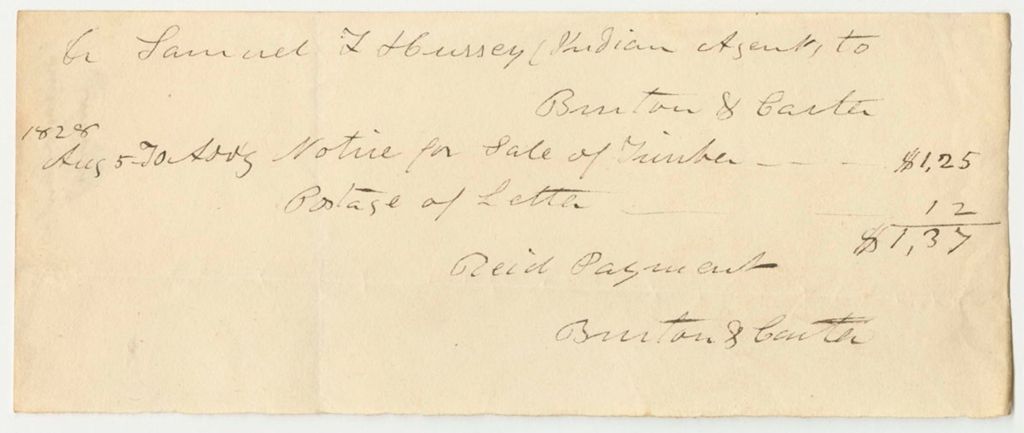 Dr Samuel F Hussey (Indian Agent, to
Burton & Carter
1828
Aug 5 To Advg Notice for Sale of Timber — — - $1,25
Postage of Letter — — 12
$1,37
Recd Payment
Burton & Carter